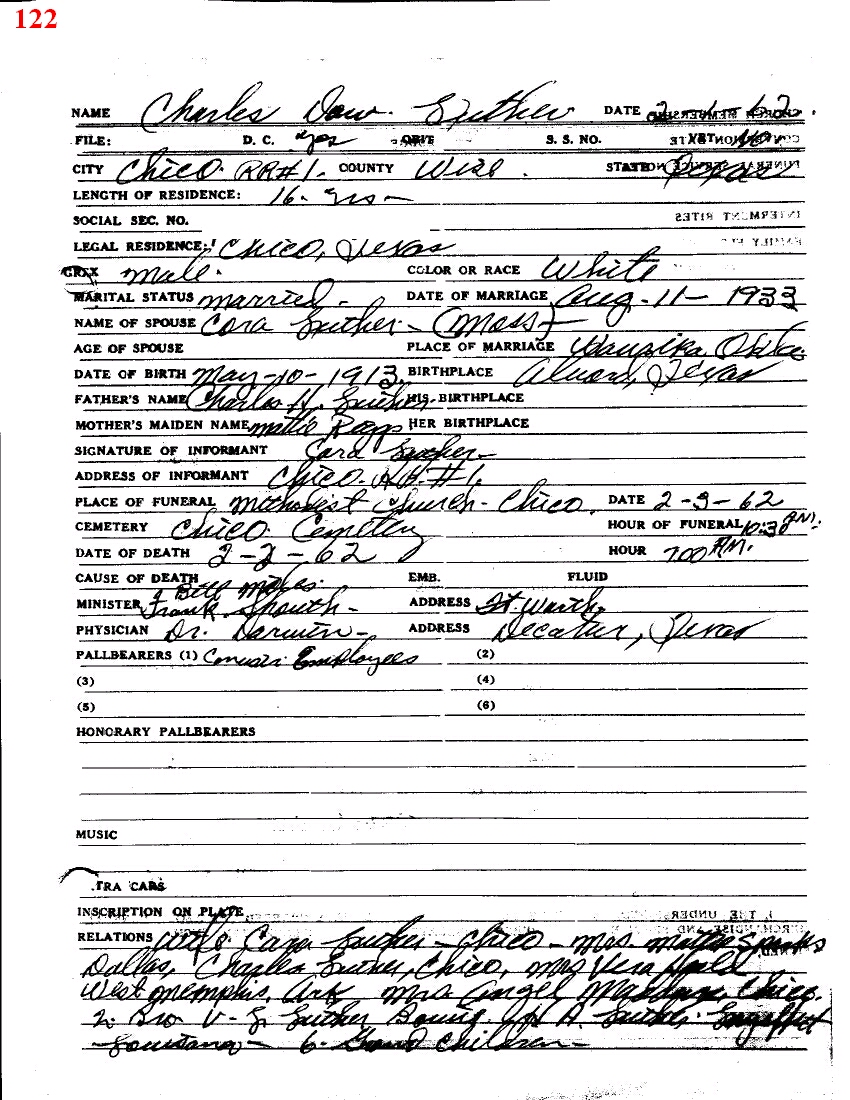 122
NAME Charles Dow Suther DATE 2-1-62
FILE: D. C. yes OBIT S. S. NO.
CITY Chico. RR#1. COUNTY Wise STATE Texas
LENGTH OF RESIDENCE: 16. yrs-
SOCIAL SEC. NO.
LEGAL RESIDENCE: Chico, Texas
male. COLOR OR RACE White
MARITAL STATUS married- DATE OF MARRIAGE Aug-11-1933
NAME OF SPOUSE Cora Suther-(Moss)-
AGE OF SPOUSE PLACE OF MARRIAGE Waurika, Okla.
DATE OF BIRTH May-10-1913. BIRTHPLACE Alvord, Texas
FATHER'S NAME Charles H. Suther HIS BIRTHPLACE
MOTHER'S MAIDEN NAME mattie HER BIRTHPLACE
SIGNATURE OF INFORMANT Cora Suther-
ADDRESS OF INFORMANT Chico. RR#1.
PLACE OF FUNERAL Methodist Church-Chico. DATE 2-3-62
CEMETERY Chico Cemetery HOUR OF FUNERAL 10:30 AM.
DATE OF DEATH 2-2-62 HOUR 7:00 AM.
CAUSE OF DEATH EMB. FLUID
Bill
MINISTER Frank ADDRESS Ft. Worth
PHYSICIAN Dr. Darwin- ADDRESS Decatur, Texas
PALLBEARERS (1) Employees (2)
(3) (4)
(5) (6)
HONORARY PALLBEARERS
MUSIC
TRA CARS
INSCRIPTION ON PLATE
RELATIONS Wife. Cora Suther-Chico-Mrs. Mattie Sparks
Dallas, Charles Suther, Chico, Mrs Vera
West Memphis, Ark Mrs Angel Chico.
2. Bro V-S. Suther H. A. Suther
Louisiana- 6-Grand Children-